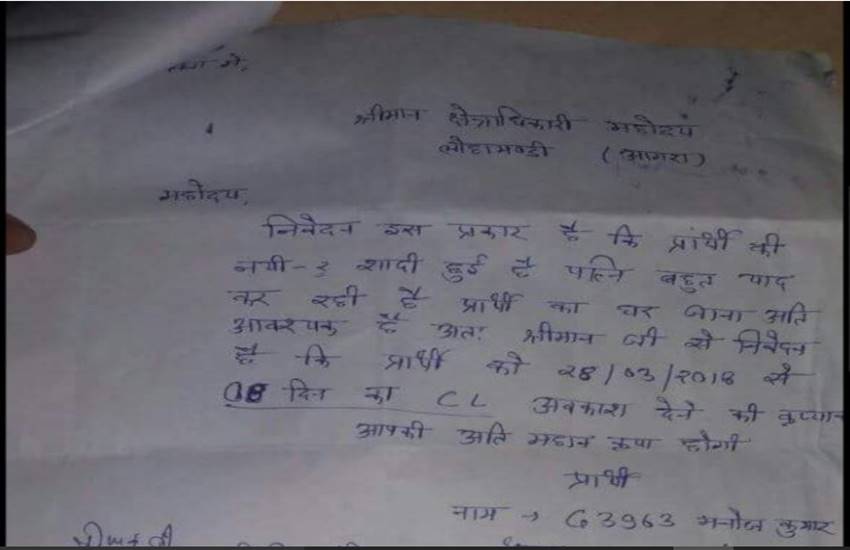 सेवा में,
श्रीमान क्षेत्राधिकारी महोदय
लोहामण्डी (आगरा)
महोदय,
निवेदन इस प्रकार है कि प्रार्थी की
नयी-२ शादी हुई है पत्नि बहुत याद
कर रही है प्रार्थी का घर जाना अति
आवश्यक है अतः श्रीमान जी से निवेदन
है कि प्रार्थी को 28/03/2018 से
08 दिन का CL अवकाश देने की
आपकी अति महान कृपा होगी
प्रार्थी
नाम → G3963 मनोज कुमार